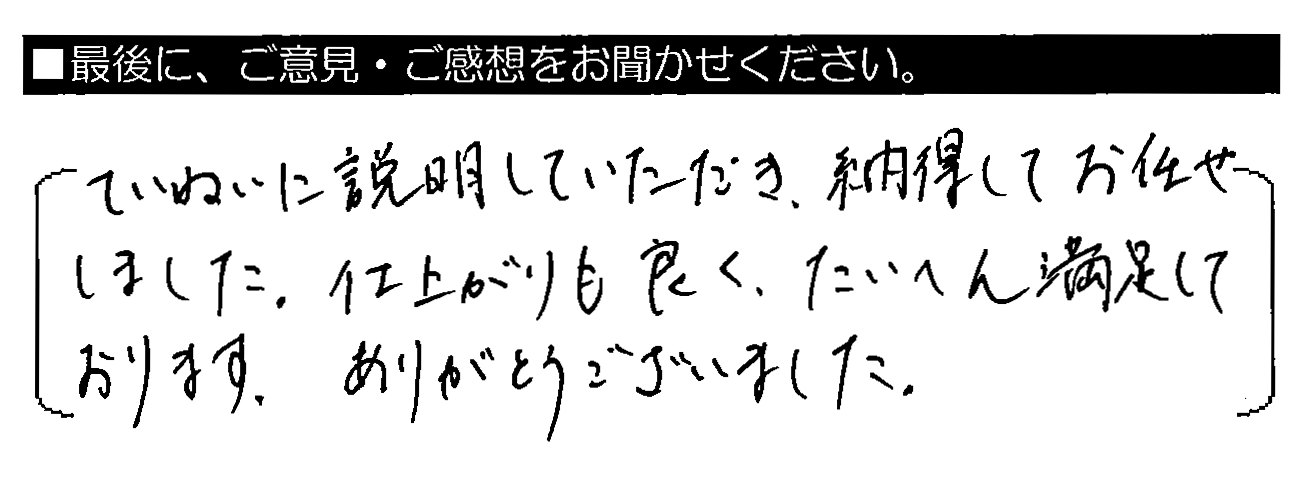 ■最後に、ご意見・ご感想をお聞かせください。
ていねいに説明していただき、納得してお任せ
しました。仕上がりも良く、たいへん満足して
おります。ありがとうございました。